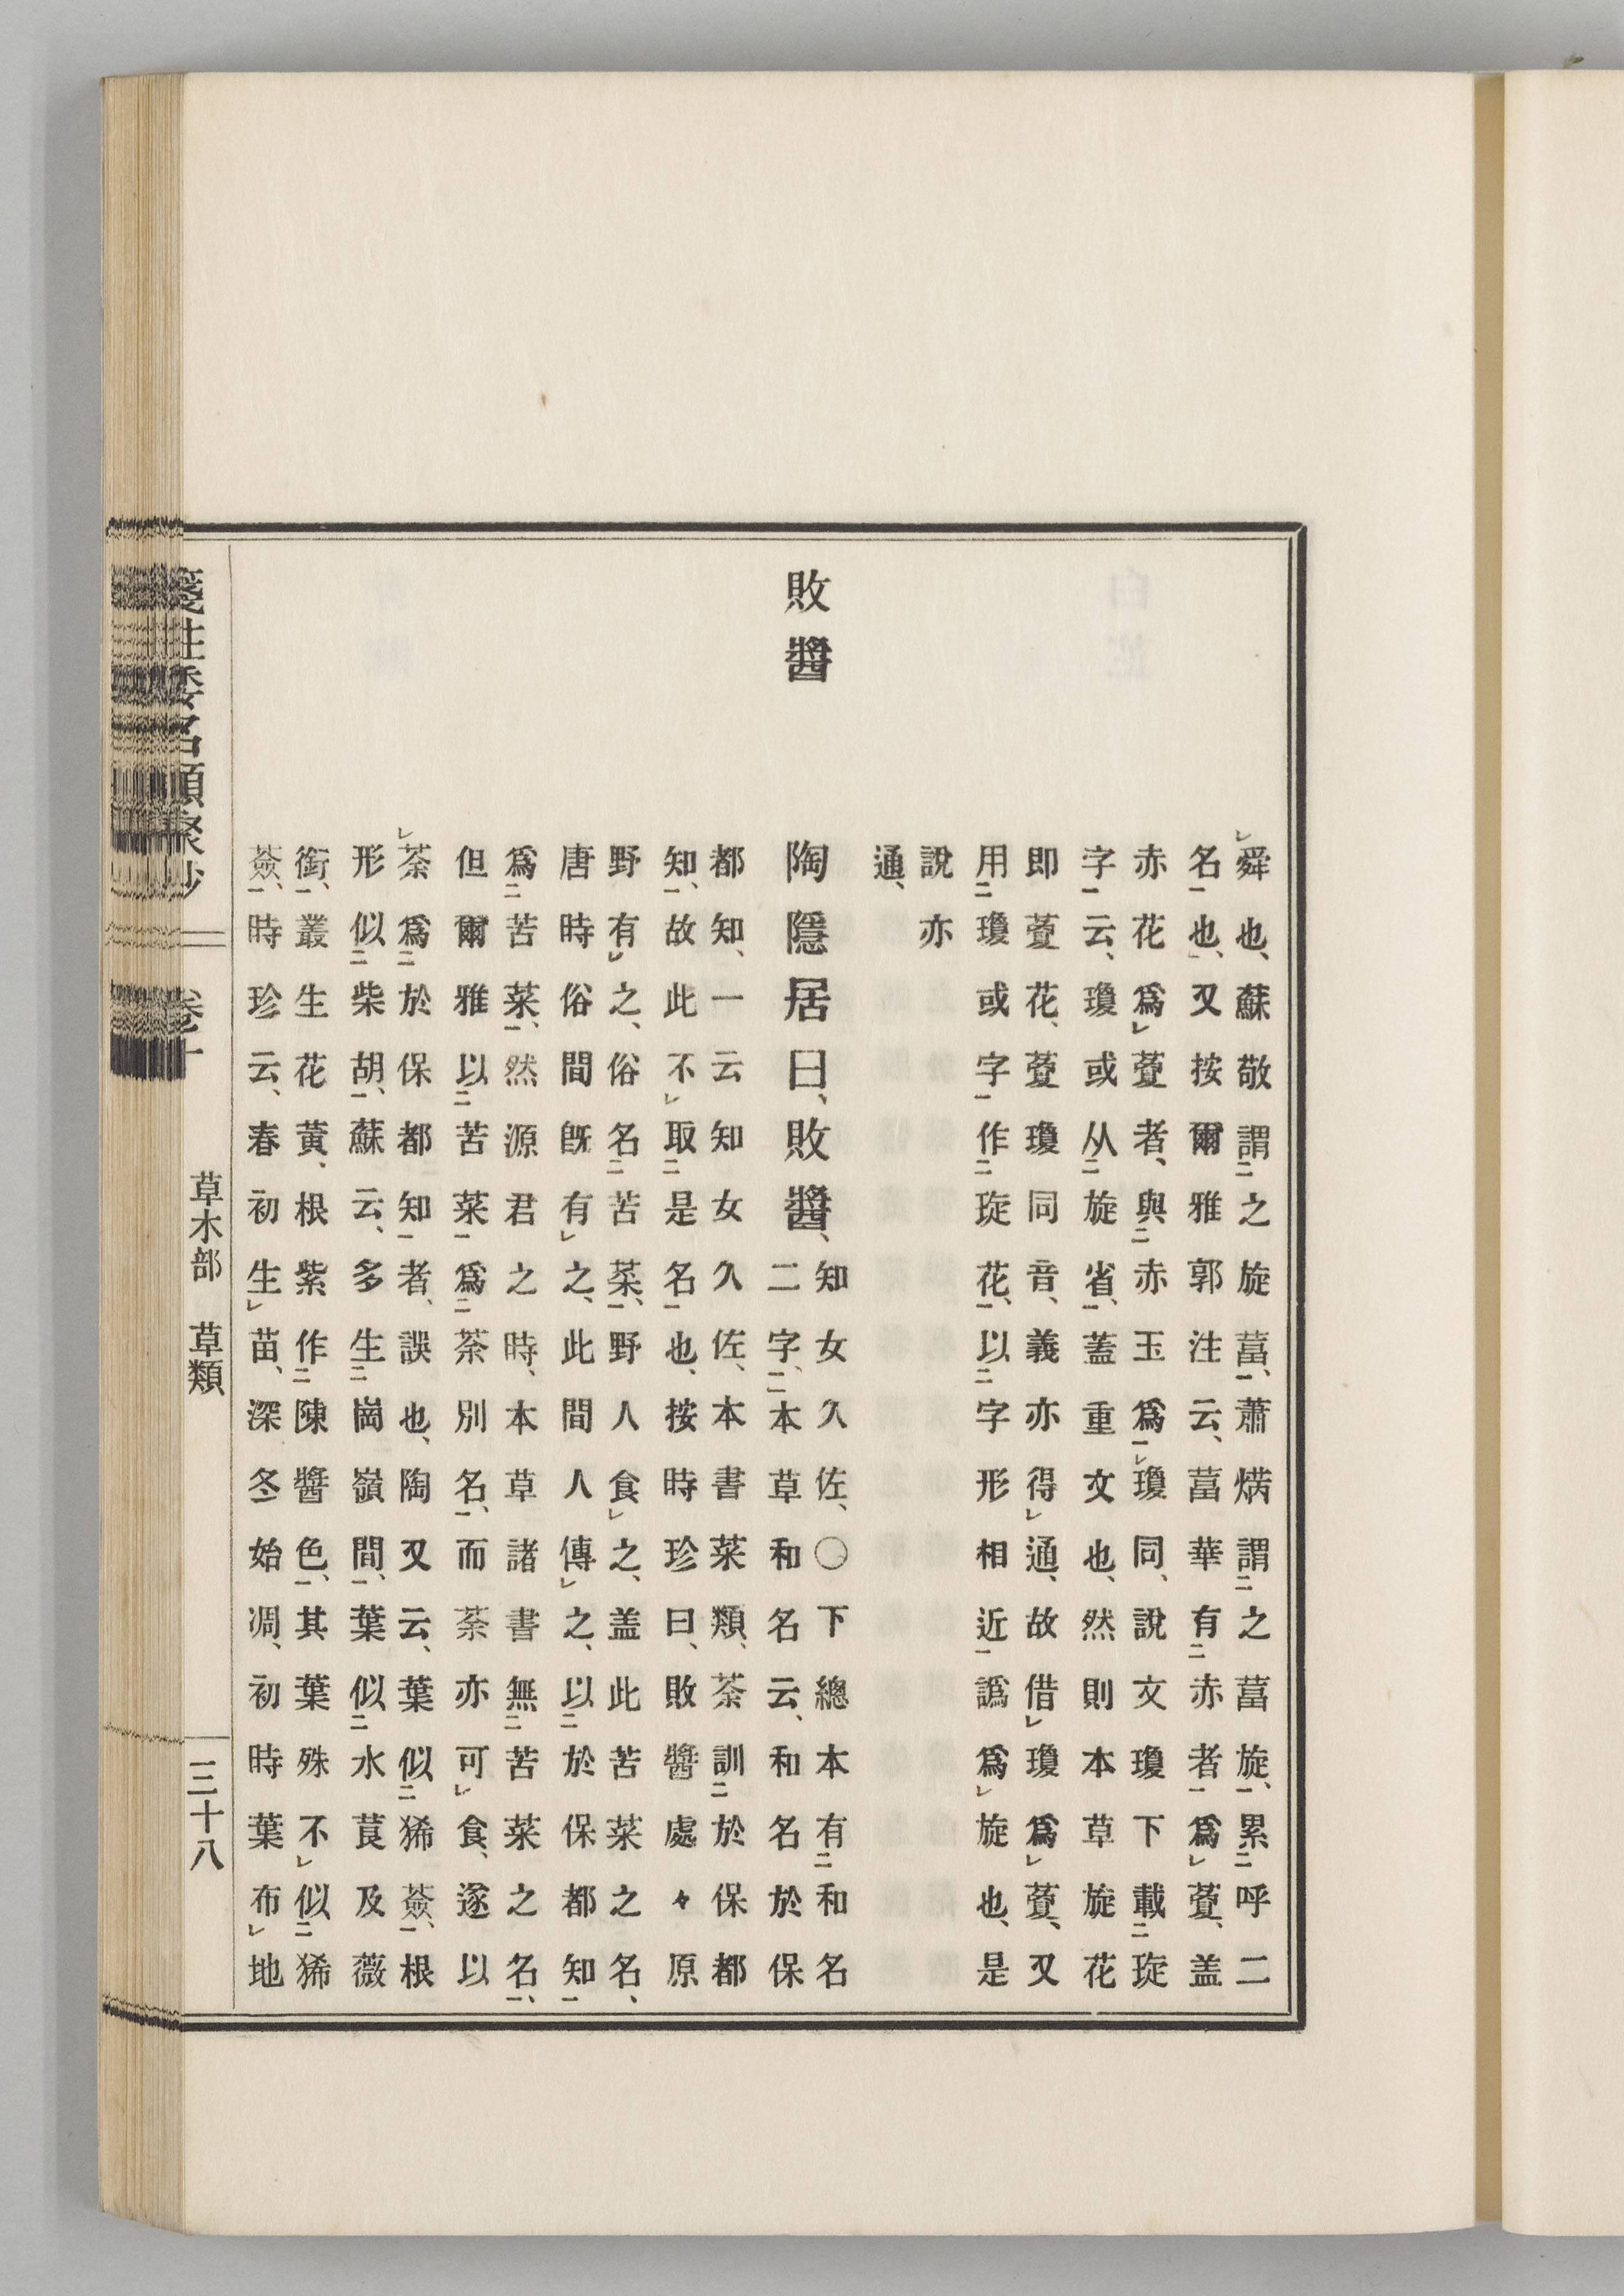 舜也、蘇敬謂之旋葍、蕭𤇾謂之葍旋、累呼二
名也、又按爾雅郭注云、葍華有赤者爲藑、盖
赤花爲藑者、與赤玉爲瓊同、說文瓊下載琁
字云、瓊或从旋省、蓋重文也、然則本草旋花
即藑花、藑瓊同音、義亦得通、故借瓊爲藑、又
用瓊或字作琁花、以字形相近譌爲旋也、是
說亦
通、
敗醬
陶隱居曰、敗醬、知女久佐、〇下總本有和名
二字、本草和名云、和名於保
都知、一云知女久佐、本書菜類、荼訓於保都
知、故此不取是名也、按時珍曰、敗醬處々原
野有之、俗名苦菜、野人食之、盖此苦菜之名、
唐時俗間旣有之、此間人傳之、以於保都知
爲苦菜、然源君之時、本草諸書無苦菜之名、
但爾雅以苦菜爲荼別名、而荼亦可食、遂以
荼爲於保都知者、誤也、陶又云、葉似豨薟、根
形似柴胡、蘇云、多生崗嶺間、葉似水莨及薇
銜、叢生花黃、根紫作陳醬色、其葉殊不似豨
薟、時珍云、春初生苗、深冬始凋、初時葉布地
箋注倭名類聚抄 卷十 草木部 草類 三十八